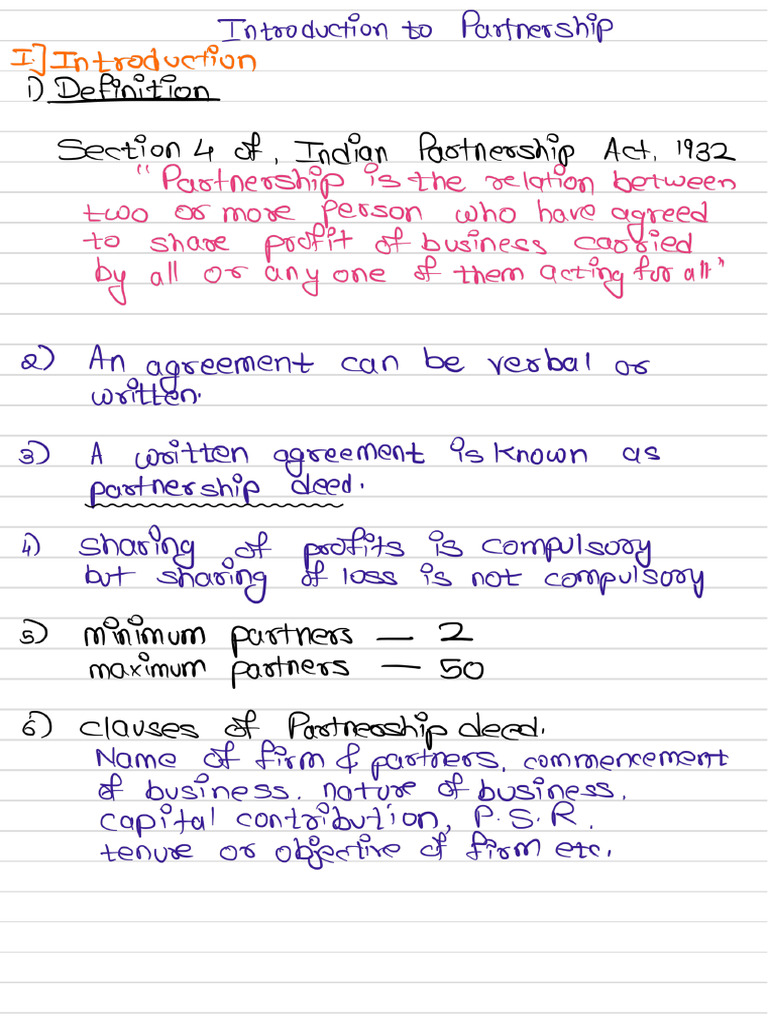 Introduction to Partnership
I] Introduction
1) Definition
Section 4 of, Indian Partnership Act, 1932
"Partnership is the relation between
two or more person who have agreed
to share profit of business carried
by all or any one of them acting for all"
2) An agreement can be verbal or
written.
3) A written agreement is known as
partnership deed.
4) sharing of profits is compulsory
but sharing of loss is not compulsory
5) minimum partners — 2
maximum partners — 50
6) clauses of Partnership deed.
Name of firm & partners, commencement
of business, nature of business,
capital contribution, P.S.R,
tenure or objective of firm etc.